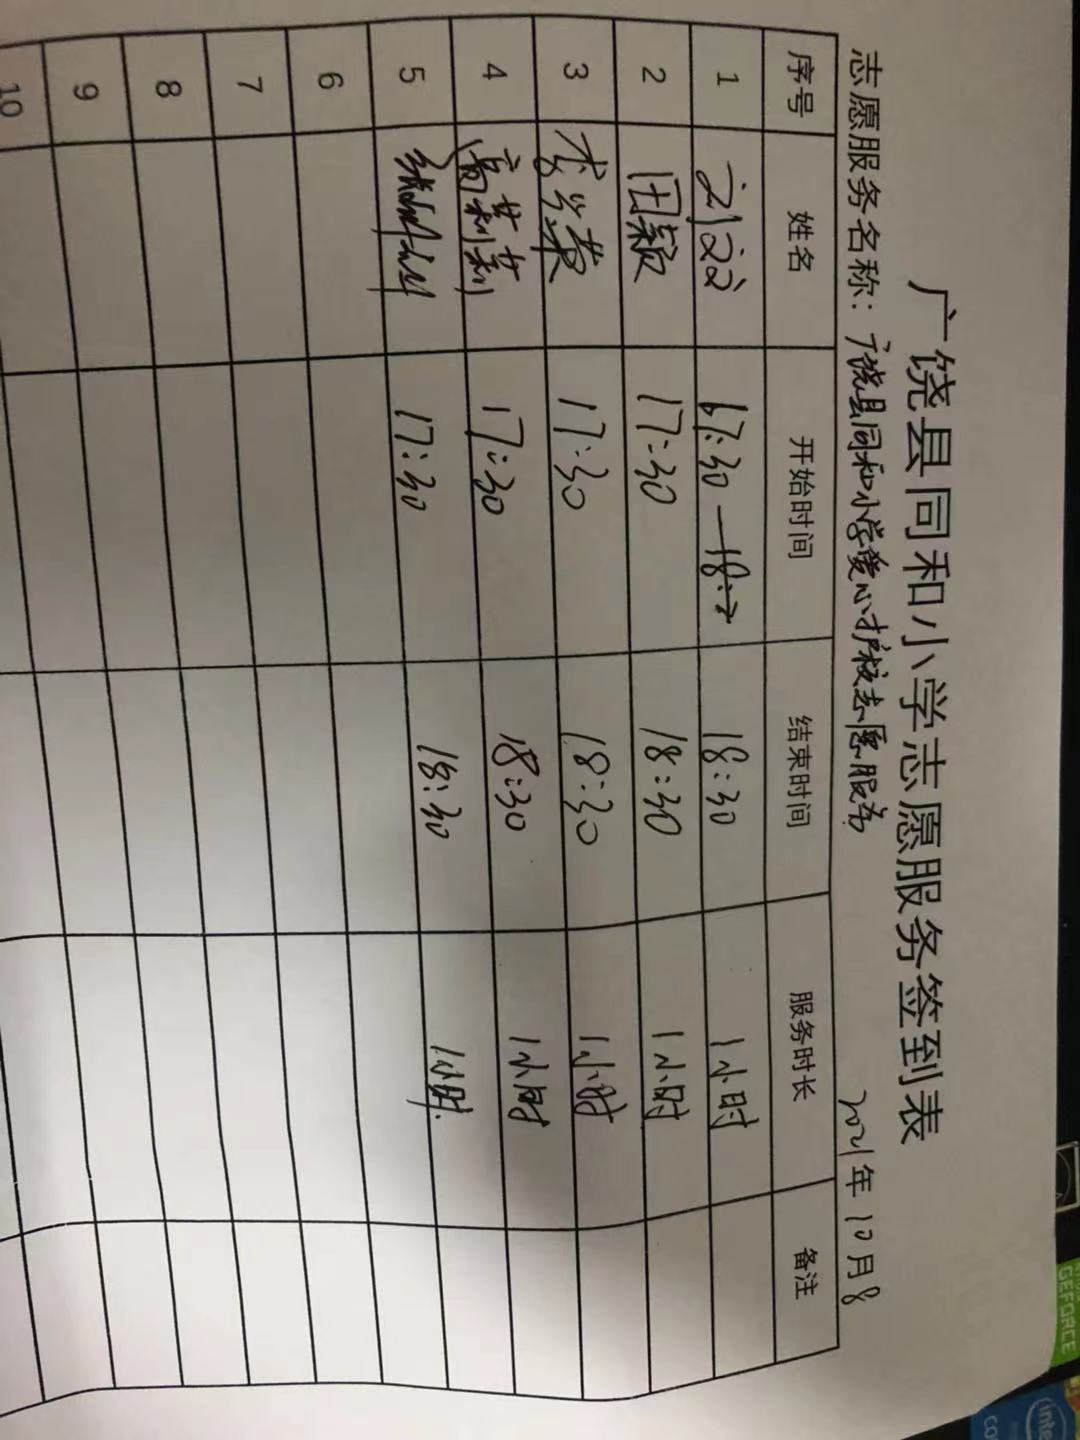 广饶县同和小学志愿服务签到表
志愿服务名称：广饶县同和小学爱心护校志愿服务 2021年10月8
序号 姓名 开始时间 结束时间 服务时长 备注
1 17:30 18:30 1小时
2 田颖 17:30 18:30 1小时
3 17:30 18:30 1小时
4 高莉莉 17:30 18:30 1小时
5 17:30 18:30 1小时
6
7
8
9
10
GEFORCE
intel
CO